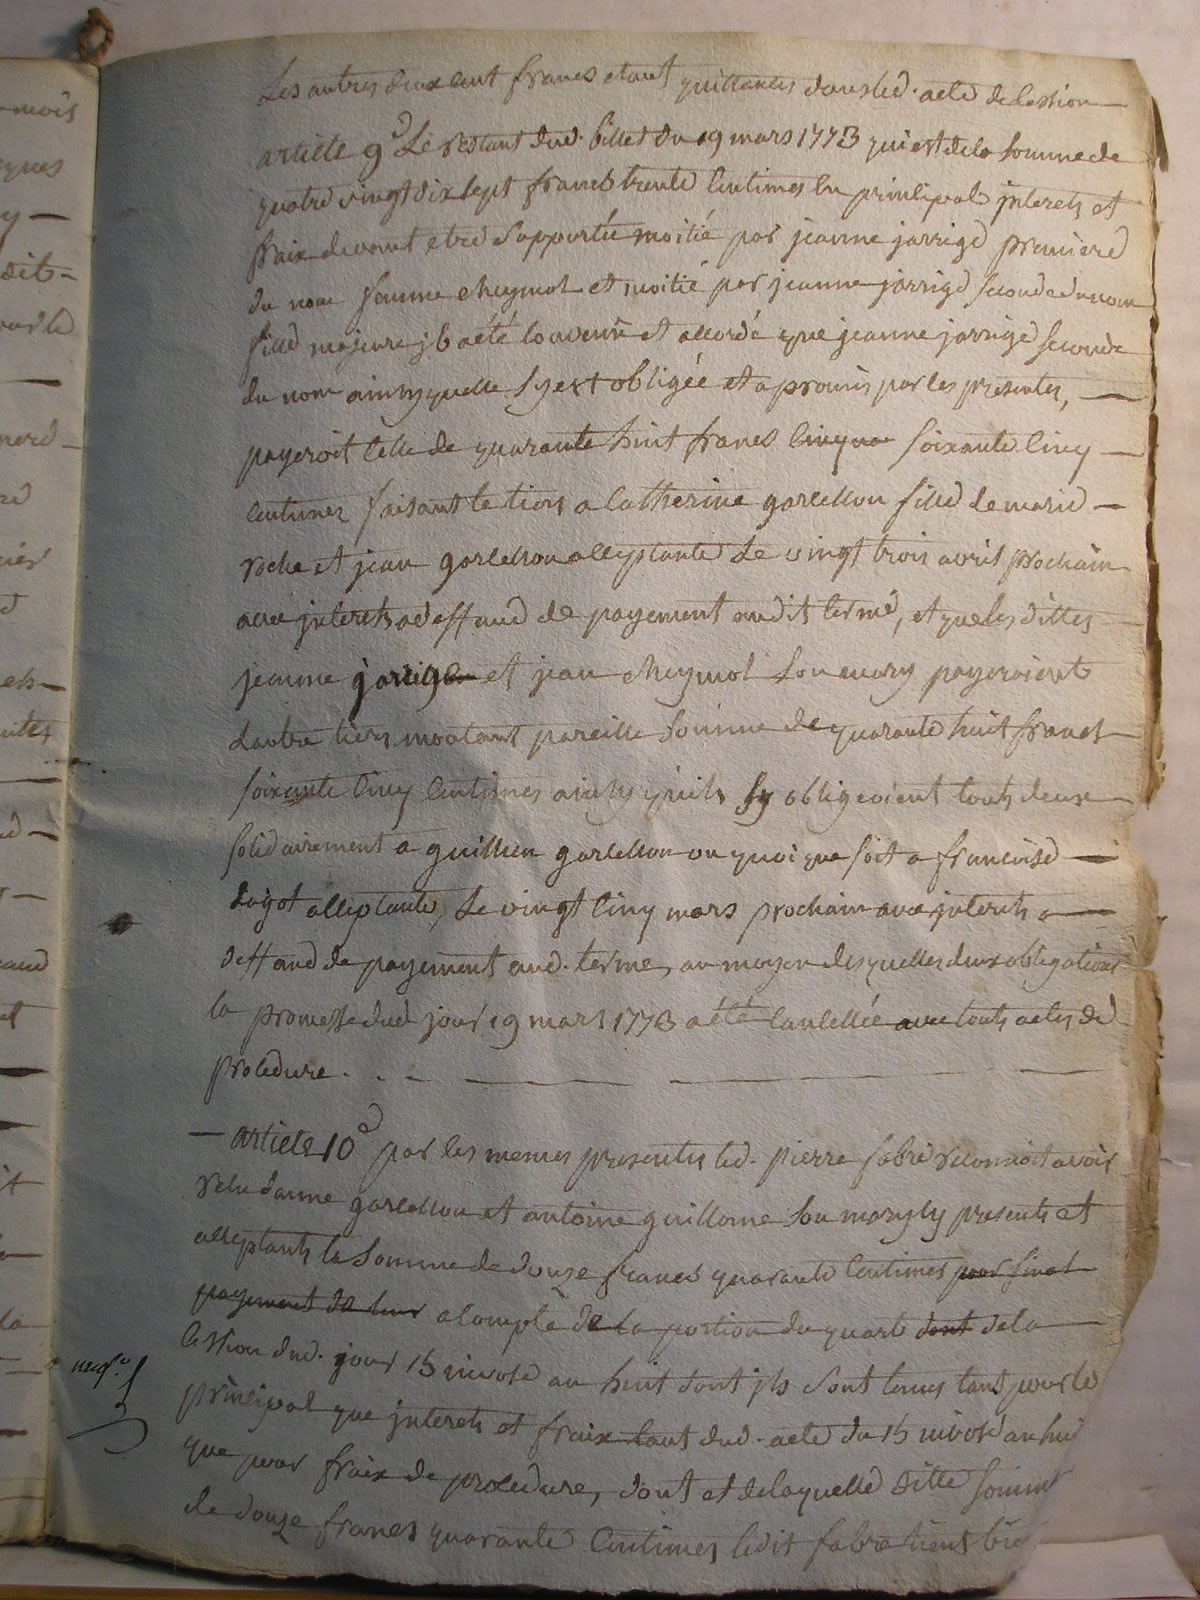 mois
ques
y —
dit —
nord —
Les autres deux cent francs etant quittancés dans led. acte de cession —
article 9e Le restant dud. billet du 19 mars 1773 qui est de la somme de
quatre vingt dix sept francs trente centimes en principal interets et
fraix devant etre supportée moitié par jeanne jarrige premiere
du nom femme cheymol et moitié par jeanne jarrige seconde du nom
fille majeure, il a été convenu et accordé que jeanne jarrige seconde
du nom ainsy quelle sy est obligée et a promis par les presentes, —
payeroit celle de quarante huit francs cinqua soixante cinq —
centimes faisant le tiers a catherine garcelon fille de marie —
roche et jean garcelon acceptante Le vingt trois avril prochain
avec interets a deffaud de payement audit terme, et que les dittes
jeanne jarrige et jean cheymol son mary payeroient
Lautre tiers montant pareille somme de quarante huit francs
soixante cinq centimes ainsy quils sy obligeoient touts deux
solidairement a guillien garcelon ou quoi que soit a francoise —
dagot acceptante, Le vingt cinq mars prochain avec interets a —
deffaud de payement aud. terme, au moyen desquelles deux obligations
la promesse dud. jour 19 mars 1773 a été cancellée avec touts actes de
procedure . . . — — —
— article 10e par les memes presentes led. pierre fabre reconnoit avoir
recu danne garcelon et antoine guillome son mary icy presents et
acceptants la somme de douze francs quarante centimes pour final
payement de leur a compte de la portion du quart dont de la —
cession dud. jour 15 nivose an huit dont ils sont tenus tant pour le
principal que interets et fraix tant dud. acte du 15 nivose an hui
que pour fraix de procedure, dont et de laquelle ditte somm
de douze francs quarante centimes ledit fabre tient